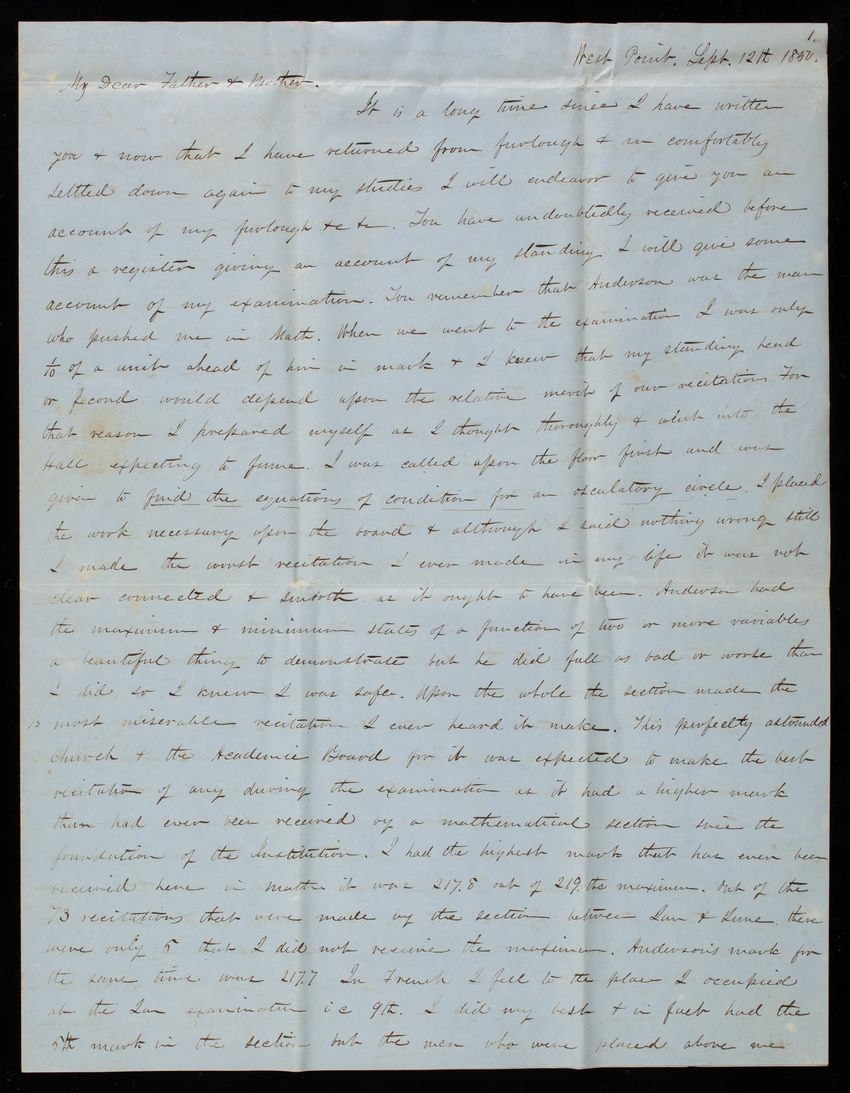 1.
West Point. Sept. 12th 1850.
My Dear Father & Mother.
It is a long time since I have written
you & now that I have returned from furlough & am comfortably
settled down again to my studies I will endeavor to give you an
account of my furlough &c &c. You have undoubtedly received before
this a register giving an account of my standing I will give some
account of my examination. You remember that Anderson was the man
who pushed me in Math. When we went to the examination I was only
1/10 of a unit ahead of him in mark & I knew that my standing head
or second would depend upon the relative merit of our recitations For
that reason I prepared myself as I thought thoroughly & went into the
Hall expecting to fume. I was called upon the floor first and was
given to find the equations of condition for an osculatory circle. I placed
the work necessary upon the board & although I said nothing wrong still
I made the worst recitation I ever made in my life it was not
clear connected & smooth as it ought to have been. Anderson had
the maximum & minimum states of a function of two or more variables
a beautiful thing to demonstrate but he did full as bad or worse than
I did so I knew I was safe. Upon the whole the section made the
most miserable recitation I ever heard it make. This perfectly astounded
Church & the Academic Board for it was expected to make the best
recitation of any during the examination as it had a higher mark
than had ever been received by a mathematical section since the
foundation of the Institution. I had the highest mark that has ever been
received here in maths it was 217.8 out of 219. the maximum. Out of the
73 recitations that were made by the section between Jan & June there
were only 5 that I did not receive the maximum. Anderson's mark for
the same time was 217.7 In French I fell to the place I occupied
at the Jan examination i e 9th. I did my best & in fact had the
5th mark in the section but the men who were placed above me